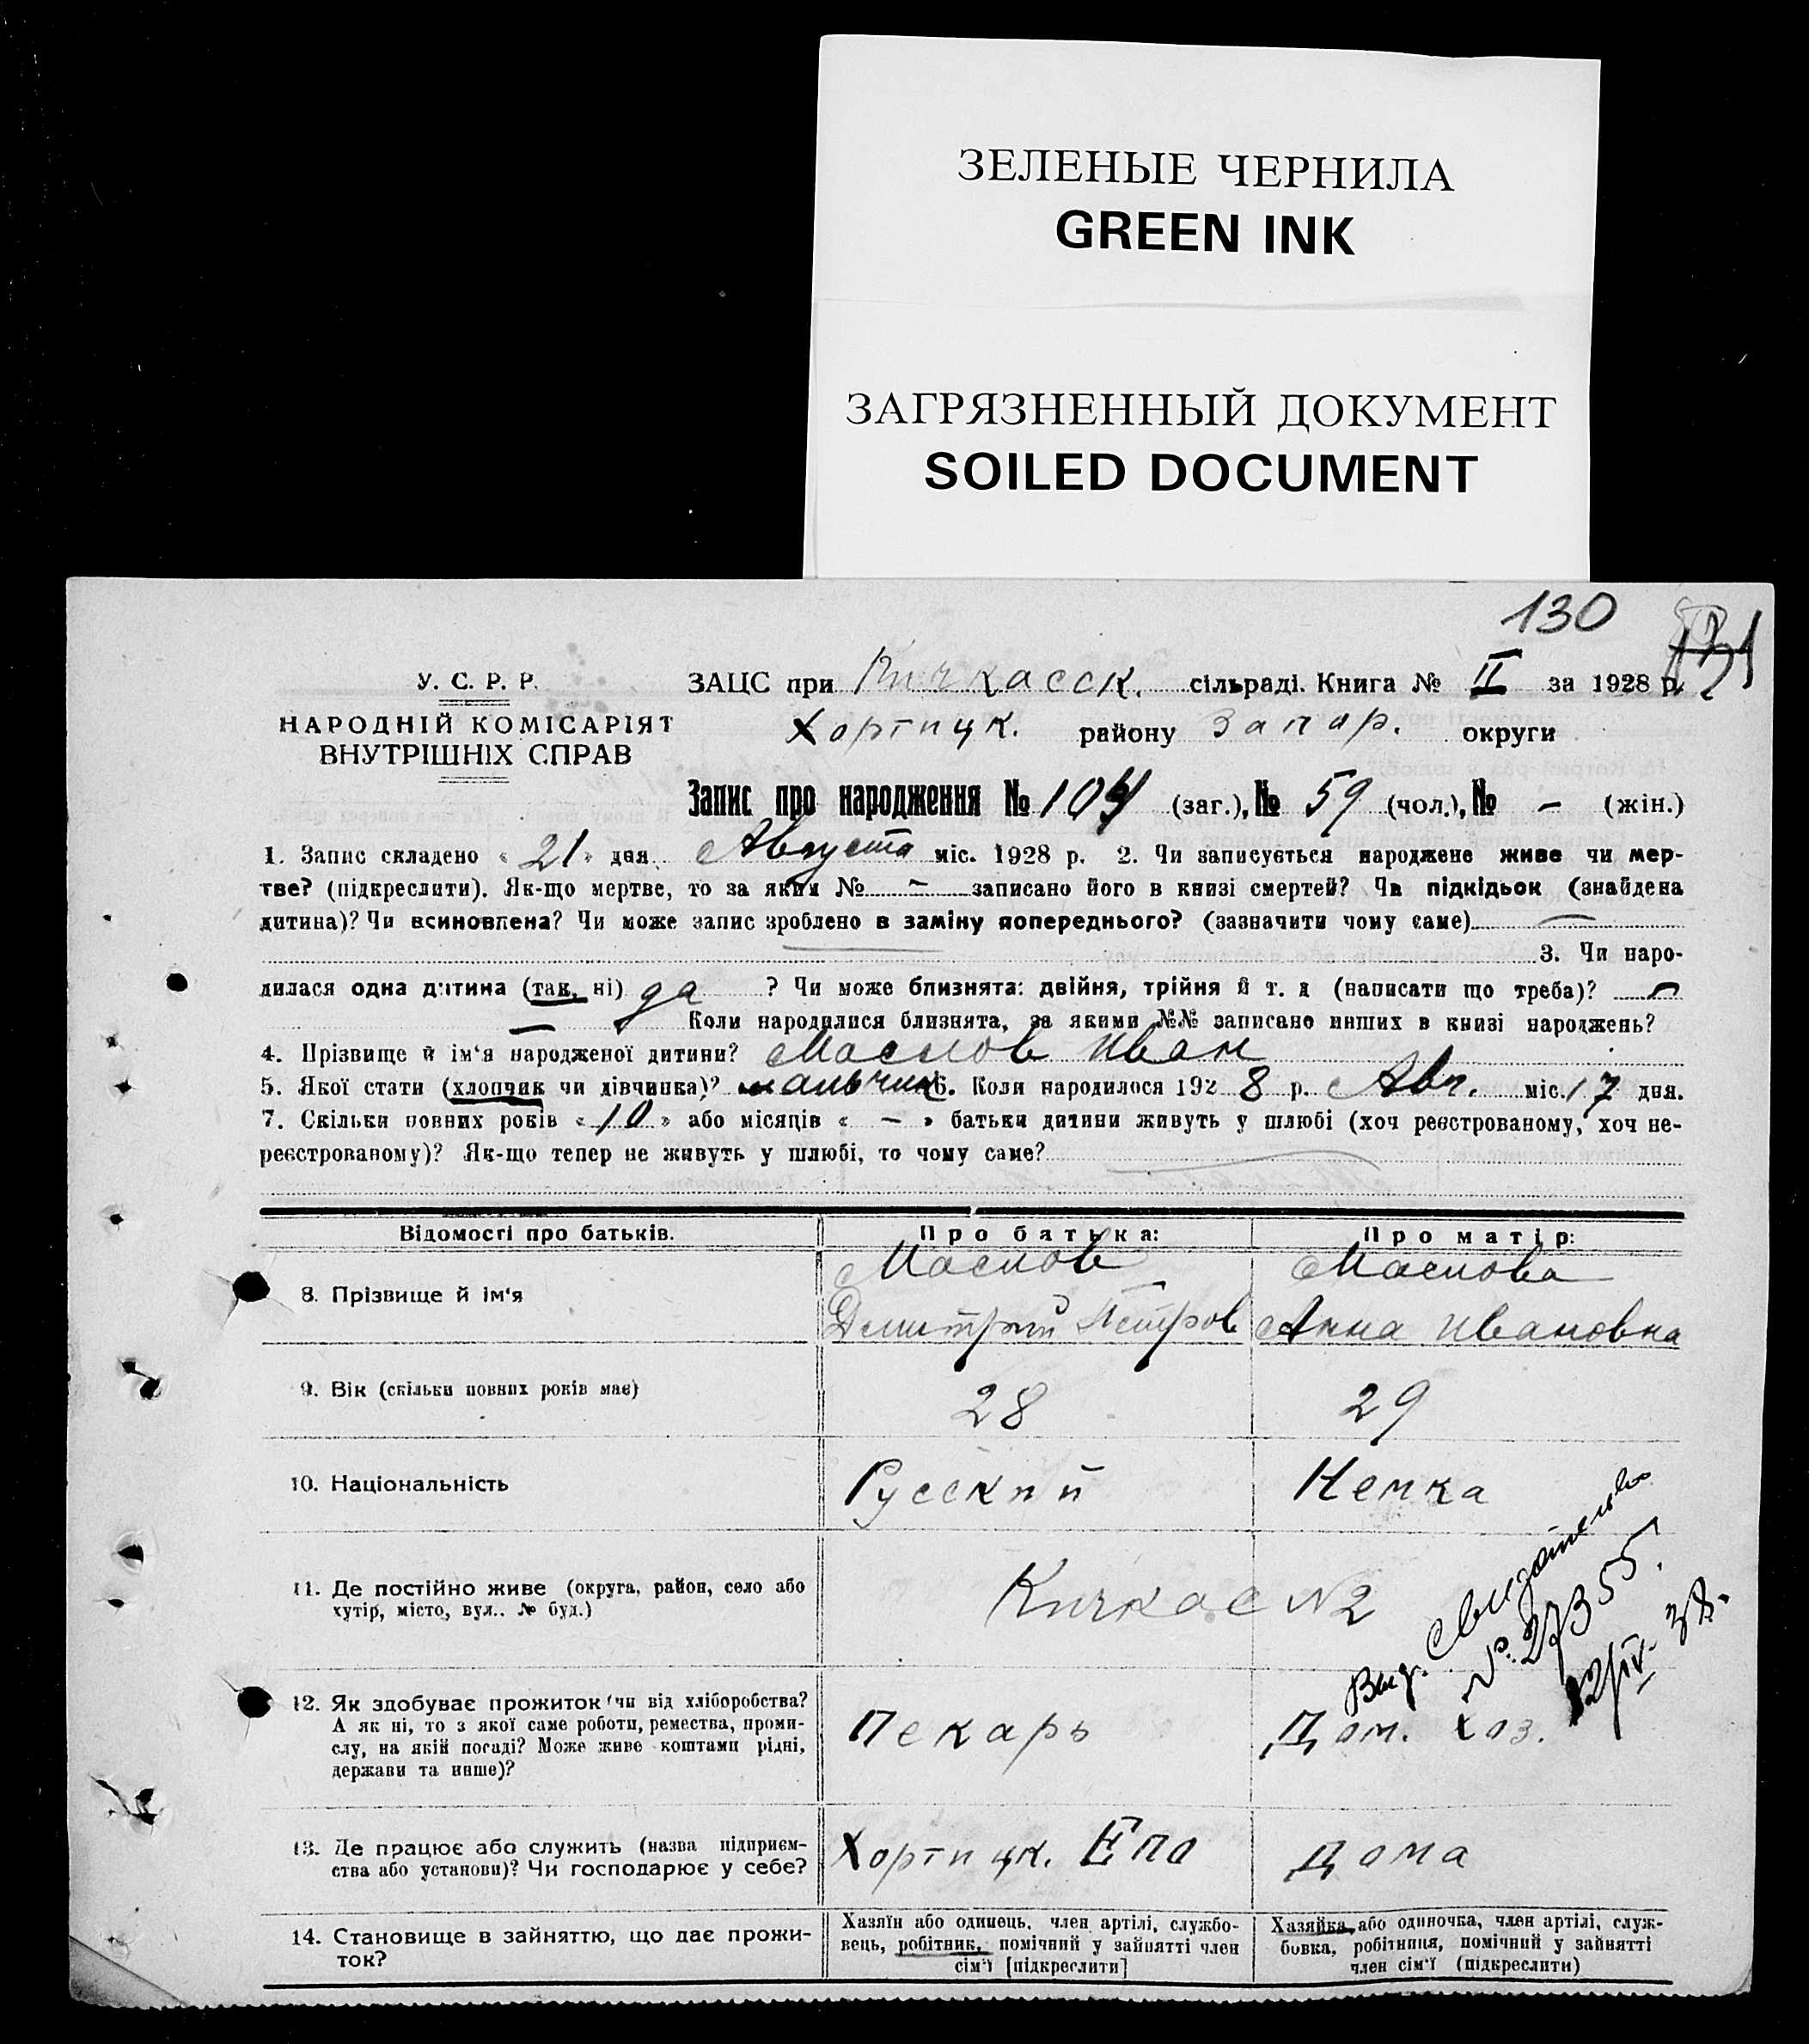 ЗЕЛЕНЫЕ ЧЕРНИЛА
GREEN INK
ЗАГРЯЗНЕННЫЙ ДОКУМЕНТ
SOILED DOCUMENT
130
У. С. Р. Р.
НАРОДНІЙ КОМІСАРІЯТ
ВНУТРІШНІХ СПРАВ
ЗАЦС при Кичкасск. сільраді. Книга № II за 1928 р.
Хортицк. району Запор. округи
Запис про народження № 104 (заг.), № 59 (чол.), № – (жін.)
1. Запис складено «21» дня Августа міс. 1928 р. 2. Чи записується народжене живе чи мер-
тве? (підкреслити). Як-що мертве, то за яким № – записано його в книзі смертей? Чи підкідьок (знайдена
дитина)? Чи всиновлена? Чи може запис зроблено в заміну попереднього? (зазначити чому саме) —
3. Чи наро-
дилася одна дитина (так, ні) да ? Чи може близнята: двійня, трійня й т. д (написати що треба)? —
— Коли народилися близнята, за якими №№ записано инших в книзі народжень?
4. Прізвище й ім'я народженої дитини? Маслов Иван
5. Якої стати (хлопчик чи дівчинка)? мальчик 6. Коли народилося 1928 р. Авг. міс. 17 дня.
7. Скільки повних років «10» або місяців « – » батьки дитини живуть у шлюбі (хоч реєстрованому, хоч не-
реєстрованому)? Як-що тепер не живуть у шлюбі, то чому саме?
Відомості про батьків. Про батька: Про матір:
8. Прізвище й ім'я Маслов Дмитрий Петров Маслова Анна Ивановна
9. Вік (скільки повних років має) 28 29
10. Національність Русский Немка
11. Де постійно живе (округа, район, село або
хутір, місто, вул.. № буд.) Кичкас N2
Выд. Свидетельство
№ 27355.
12/IV. 38.
12. Як здобуває прожиток (чи від хліборобства?
А як ні, то з якої саме роботи, ремества, проми-
слу, на якій посаді? Може живе коштами рідні,
держави та инше)? Пекарь Дом. хоз.
13. Де працює або служить (назва підприєм-
ства або установи)? Чи господарює у себе? Хортицк. ЕПО Дома
14. Становище в зайняттю, що дає прожи-
ток?
Хазяїн або одинець, член артілі, службо-
вець, робітник, помічний у зайнятті член
сім'ї [підкреслити]
Хазяйка або одиночка, член артілі, служ-
бовка, робітниця, помічний у зайнятті
член сім'ї (підкреслити)